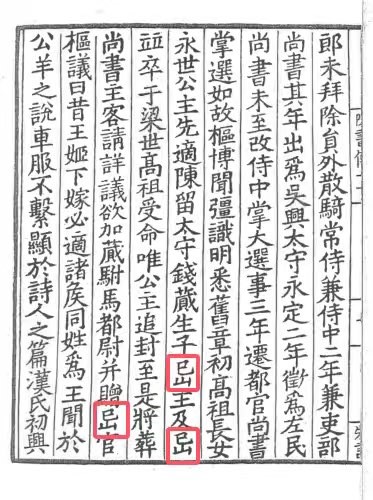 郎未拜除貟外散騎常侍兼侍中二年兼吏部
尚書其年出爲吳興太守永定二年徵爲左民
尚書未至改侍中掌大選事三年遷都官尚書
掌選如故樞博聞彊識明悉舊章初高祖長女
永世公主先適陳留太守錢蕆生子岊主及岊
竝卒于梁世高祖受命唯公主追封至是將葬
尚書主客請詳議欲加蕆駙馬都尉并贈岊官
樞議曰昔王姬下嫁必適諸矦同姓爲王聞於
公羊之說車服不繫顯於詩人之篇漢氏初興